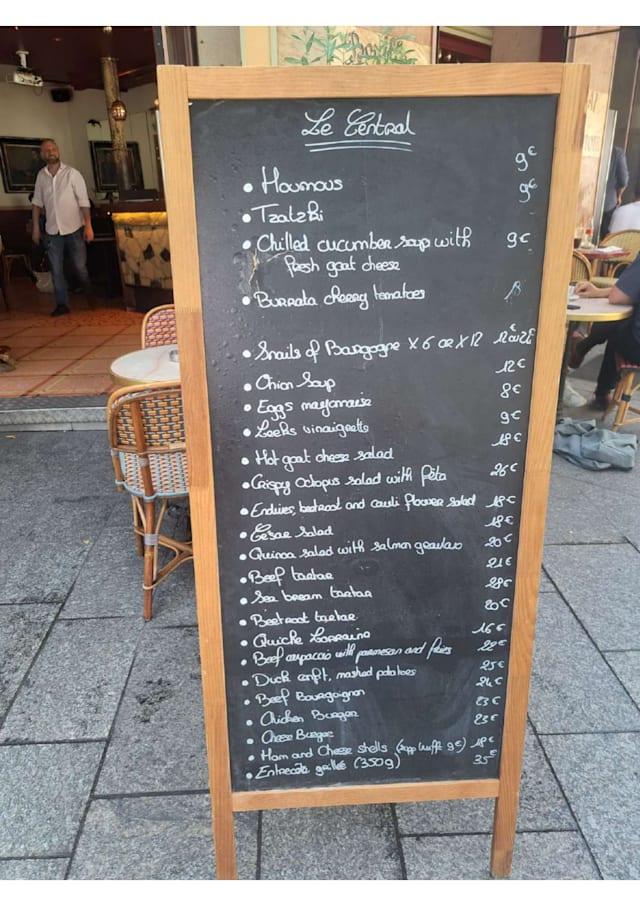 Le Central
• Houmous 9€
• Tzatzki 9€
• Chilled cucumber soup with 9€
fresh goat cheese
• Burrata cherry tomatoes 18
• Snails of Bourgogne X 6 or X 12 12€
• Onion Soup 12€
• Eggs mayonnaise 8€
• Leeks vinaigrette 9€
• Hot goat cheese salad 18€
• Crispy Octopus salad with fêta 26€
• Endives, beetroot and cauli flower salad 18€
• Cesar Salad 18€
• Quinoa salad with salmon gravlax 20€
• Beef tartar 21€
• Sea bream tartar 28€
• Beetroot tartar 20€
• Quiche Lorraine 16€
• Beef carpaccio with parmesan and fries 22€
• Duck confit, mashed potatoes 25€
• Beef Bourguignon 24€
• Chicken Burger 23€
• Cheese Burger 23€
• Ham and Cheese shells (supp truffe 9€) 18€
• Entrecôte grillée (350g) 35€